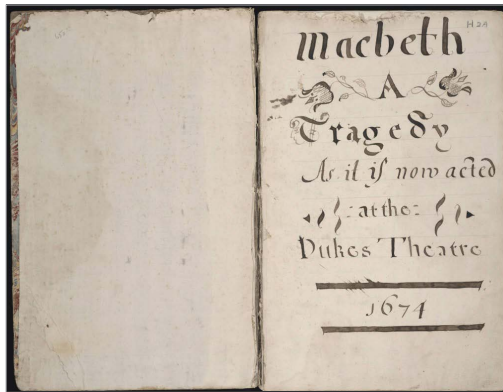 Macbeth
A
Tragedy
As it is now acted
: at the :
Dukes Theatre
1674